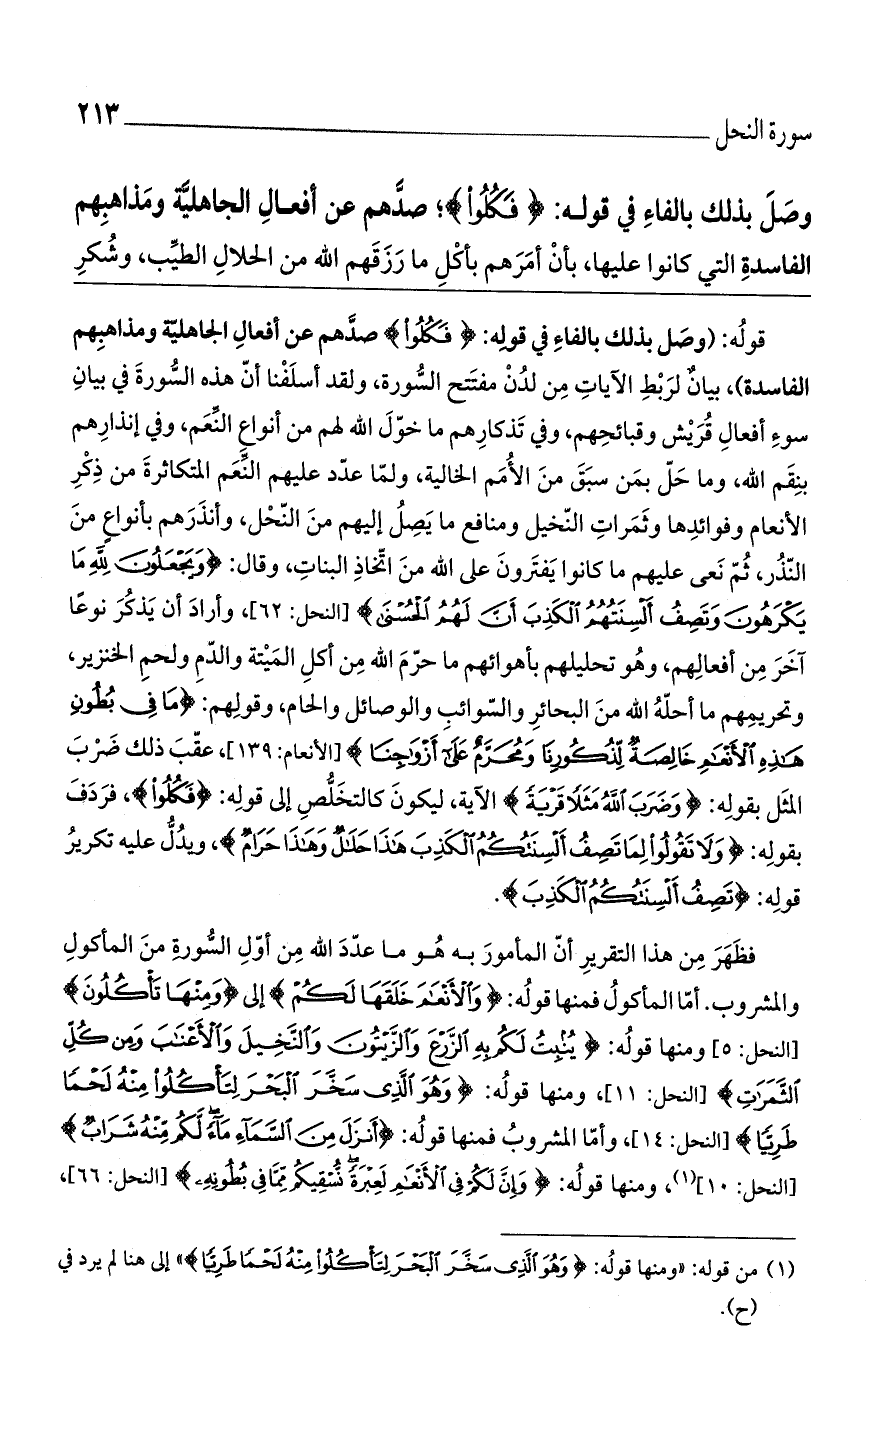 سورة النحل ٢١٣
وصَلَ بذلك بالفاءِ في قولـه: ﴿ فَكُلُواْ ﴾؛ صدَّهم عن أفعـالِ الجاهليَّة ومَذاهبِهم
الفاسدةِ التي كانوا عليها، بأنْ أمَرَهم بأكْلِ ما رَزَقَهم الله من الحلالِ الطيِّب، وشُكرِ
قولُه: (وصَل بذلك بالفاءِ في قولِه: ﴿ فَكُلُواْ ﴾ صدَّهم عن أفعالِ الجاهليّة ومذاهبِهم
الفاسدة)، بيانٌ لرَبْطِ الآياتِ مِن لدُنْ مفتتَحِ السُّورة، ولقد أسلَفْنا أنّ هذه السُّورةَ في بيانِ
سوءِ أفعالِ قُرَيْش وقبائحِهم، وفي تَذكارِهم ما خوّلَ الله لهم من أنواعِ النِّعَم، وفي إنذارِهم
بنِقَم الله، وما حَلّ بمَن سبَقَ منَ الأُمَم الخالية، ولمّا عدّد عليهم النِّعَم المتكاثرةَ من ذِكْرِ
الأنعام وفوائدِها وثَمَراتِ النّخيل ومنافع ما يَصِلُ إليهم منَ النّحْل، وأنذَرَهم بأنواعٍ منَ
النُّذُر، ثُمّ نَعى عليهم ما كانوا يَفتَرونَ على الله منَ اتّخاذِ البنات، وقال: ﴿وَيَجْعَلُونَ لِلَّهِ مَا
يَكْرَهُونَ وَتَصِفُ أَلْسِنَتُهُمُ ٱلْكَذِبَ أَنَّ لَهُمُ ٱلْحُسْنَىٰ﴾ [النحل: ٦٢]، وأرادَ أن يَذكُرَ نوعًا
آخَرَ مِن أفعالِهم، وهُو تحليلهم بأهوائهم ما حرّمَ الله مِن أكلِ المَيْتة والدّم ولحمِ الخنزير،
وتحريمهم ما أحلّهُ الله منَ البحائر والسّوائبِ والوصائل والحام، وقولِهم: ﴿مَا فِى بُطُونِ
هَـٰذِهِ ٱلْأَنْعَـٰمِ خَالِصَةٌ لِّذُكُورِنَا وَمُحَرَّمٌ عَلَىٰٓ أَزْوَٰجِنَا ﴾ [الأنعام: ١٣٩]، عقّبَ ذلك ضَرْبَ
المثَل بقولِه: ﴿ وَضَرَبَ ٱللَّهُ مَثَلًا قَرْيَةً ﴾ الآية، ليكونَ كالتخلُّصِ إلى قولِه: ﴿فَكُلُواْ﴾، فرَدَفَ
بقولِه: ﴿ وَلَا تَقُولُواْ لِمَا تَصِفُ أَلْسِنَتُكُمُ ٱلْكَذِبَ هَـٰذَا حَلَـٰلٌ وَهَـٰذَا حَرَامٌ ﴾، ويدُلُّ عليه تكريرُ
قولِه: ﴿تَصِفُ أَلْسِنَتُكُمُ ٱلْكَذِبَ ﴾.
فظَهَرَ مِن هذا التقريرِ أنّ المأمورَ بـه هُـو مـا عدّدَ الله مِن أوّلِ السُّورةِ منَ المأكولِ
والمشروب. أمّا المأكولُ فمنها قولُه: ﴿ وَٱلْأَنْعَـٰمَ خَلَقَهَا لَكُمْ ﴾ إلى ﴿وَمِنْهَا تَأْكُلُونَ﴾
[النحل: ٥] ومنها قولُه: ﴿ يُنۢبِتُ لَكُم بِهِ ٱلزَّرْعَ وَٱلزَّيْتُونَ وَٱلنَّخِيلَ وَٱلْأَعْنَـٰبَ وَمِن كُلِّ
ٱلثَّمَرَٰتِ﴾ [النحل: ١١]، ومنها قولُه: ﴿ وَهُوَ ٱلَّذِى سَخَّرَ ٱلْبَحْرَ لِتَأْكُلُواْ مِنْهُ لَحْمًا
طَرِيًّا ﴾ [النحل: ١٤]، وأمّا المشروبُ فمنها قولُه: ﴿أَنزَلَ مِنَ ٱلسَّمَآءِ مَآءً ۖ لَّكُم مِّنْهُ شَرَابٌ ﴾
[النحل: ١٠](١)، ومنها قولُه: ﴿ وَإِنَّ لَكُمْ فِى ٱلْأَنْعَـٰمِ لَعِبْرَةً ۖ نُّسْقِيكُم مِّمَّا فِى بُطُونِهِۦ ﴾ [النحل: ٦٦]،
(١) من قوله: «ومنها قولُه: ﴿ وَهُوَ ٱلَّذِى سَخَّرَ ٱلْبَحْرَ لِتَأْكُلُواْ مِنْهُ لَحْمًا طَرِيًّا ﴾» إلى هنا لم يرد في
(ح).